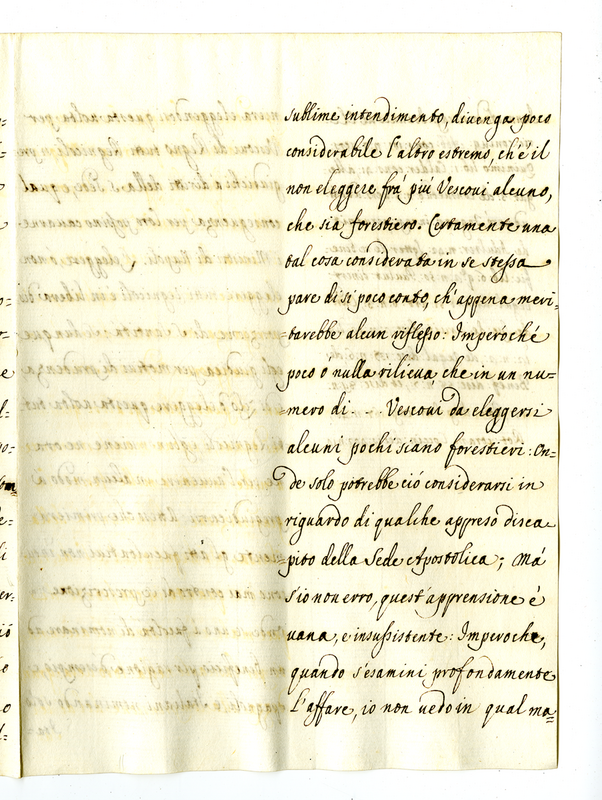 sublime intendimento, divenga poco
considerabile l'altro estremo, ch'è il
non eleggere frà più Vescovi alcuno,
che sia forestiero. Certamente una
tal cosa considerata in se stessa
pare di si poco conto, ch'appena meri=
=tarebbe alcun riflesso: Imperochè
poco ò nulla rilieva, che in un nu=
=mero di . . . Vescovi da eleggersi
alcuni pochi siano forestieri: On=
de solo potrebbe ciò considerarsi in
riguardo di qualche appreso disca
pito della Sede Apostolica; Mà
s'io non erro, quest'apprensione è
vana, e insussistente: Imperoche,
quando s'esamini profondamente
l'affare, io non vedo in qual ma=